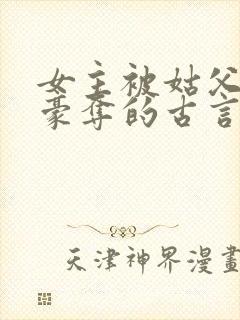 女主被姑父
豪夺的古言
天津神界漫畫